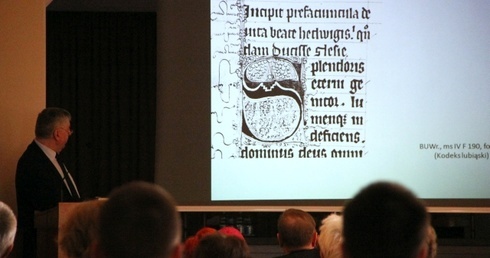 Incipit prefacuncula de
uita beate hedwigis! qu
dam ducisse slesie.
Splendoris
eterni ge
nitor. lu
menqz in
deficiens.
dominus deus omni
BUWr., ms IV F 190, fo
(Kodeks lubiąski)